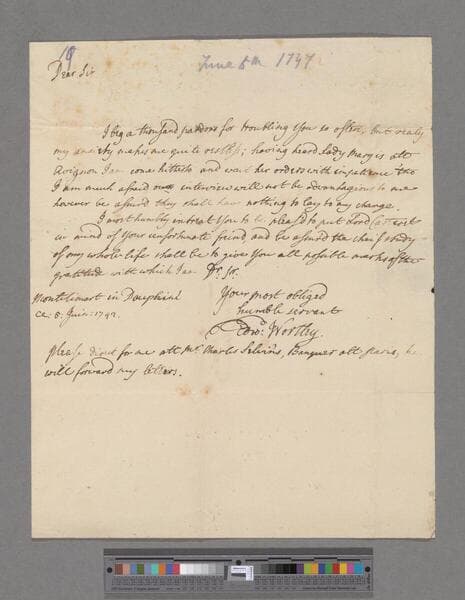 19
June 5th 1747
Dear Sir
I beg a thousand pardons for troubling You so often, but realy
my anxiety makes me quite restless; having heard Lady Mary is att
Avignon I am come hitherto and wait her orders with impatience tho
I am much afraid our interview will not be advantagious to me
however be assur'd they shall have nothing to lay to my charge.
I most humbly intreat You to be pleas'd to put Lord Carteret
in mind of Your unfortunate friend, and be assur'd the chief study
of my whole life shall be to give You all possible marks of the
gratitude with which I am Dr. Sr.
Your most obliged
humble servant
Edwd. Wortley
Montelimart in Dauphiné
ce. 5. Juin. 1742.
Please direct for me att Mr. Charles Selwins, Banquer att Paris, he
will forward my letters.